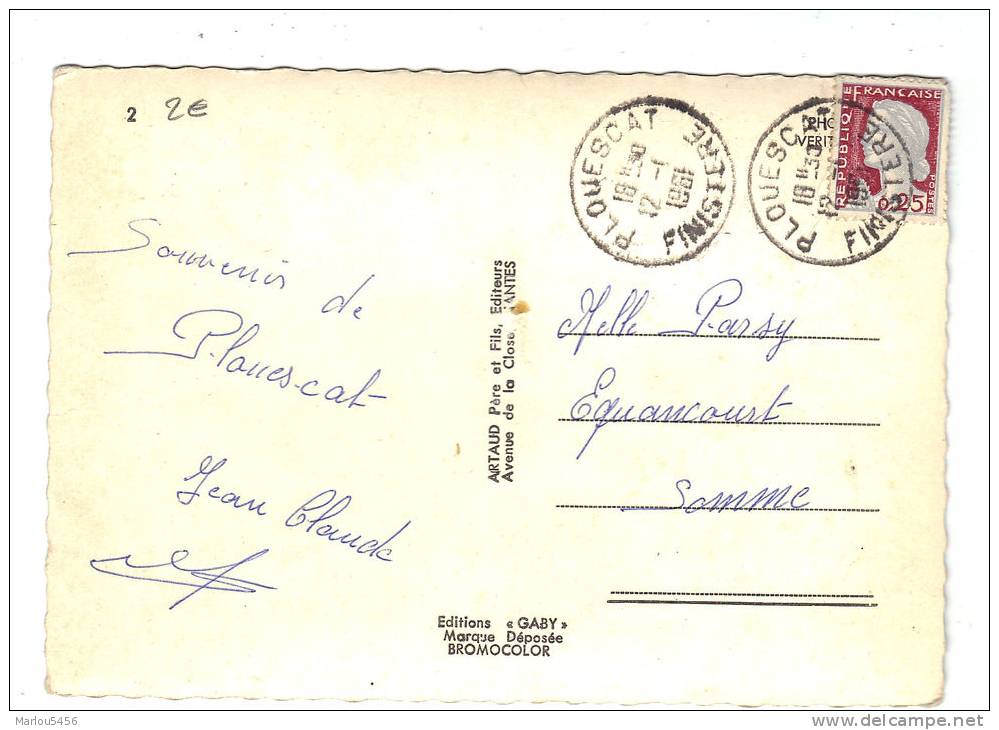 2 2€
PLOUESCAT
18H30
12-1
1961
FINISTERE
PLOUESCAT
18H30
12-1
1961
FINISTERE
REPUBLIQUE FRANÇAISE
0,25
POSTES
Souvenir de
Plouescat
Jean Claude
ARTAUD Père et Fils, Editeurs
Avenue de la Close, NANTES
Melle Parsy
Equancourt
Somme
Editions « GABY »
Marque Déposée
BROMOCOLOR
Marlou5456
www.delcampe.net